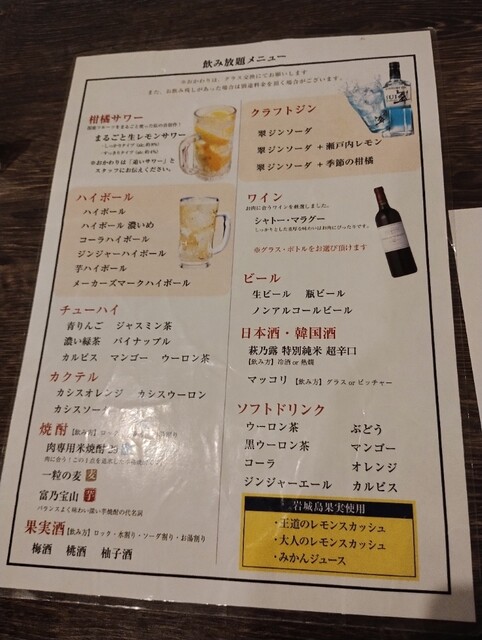 飲み放題メニュー
※おかわりは、グラス交換にてお願いします
また、お飲み残しがあった場合は別途料金を頂く場合がございます。
柑橘サワー
まるごと生レモンサワー
※おかわりは「追いサワー」と
スタッフにお伝えください。
ハイボール
ハイボール
ハイボール 濃いめ
コーラハイボール
ジンジャーハイボール
芋ハイボール
メーカーズマークハイボール
チューハイ
青りんご ジャスミン茶
濃い緑茶 パイナップル
カルピス マンゴー ウーロン茶
カクテル
カシスオレンジ カシスウーロン
カシスソーダ
焼酎【飲み方】
肉専用米焼酎
一粒の麦 麦
富乃宝山 芋
バランスよく味わい深い芋焼酎の代名詞
果実酒【飲み方】ロック・水割り・ソーダ割り・お湯割り
梅酒 桃酒 柚子酒
クラフトジン
翠ジンソーダ
翠ジンソーダ + 瀬戸内レモン
翠ジンソーダ + 季節の柑橘
ワイン
お肉に合うワインを厳選しました。
シャトー・マラグー
しっかりとした重厚な味わいはお肉にぴったりです。
※グラス・ボトルをお選び頂けます
ビール
生ビール 瓶ビール
ノンアルコールビール
日本酒・韓国酒
萩乃露 特別純米 超辛口
【飲み方】冷酒 or 熱燗
マッコリ 【飲み方】グラス or ピッチャー
ソフトドリンク
ウーロン茶 ぶどう
黒ウーロン茶 マンゴー
コーラ オレンジ
ジンジャーエール カルピス
岩城島果実使用
・王道のレモンスカッシュ
・大人のレモンスカッシュ
・みかんジュース